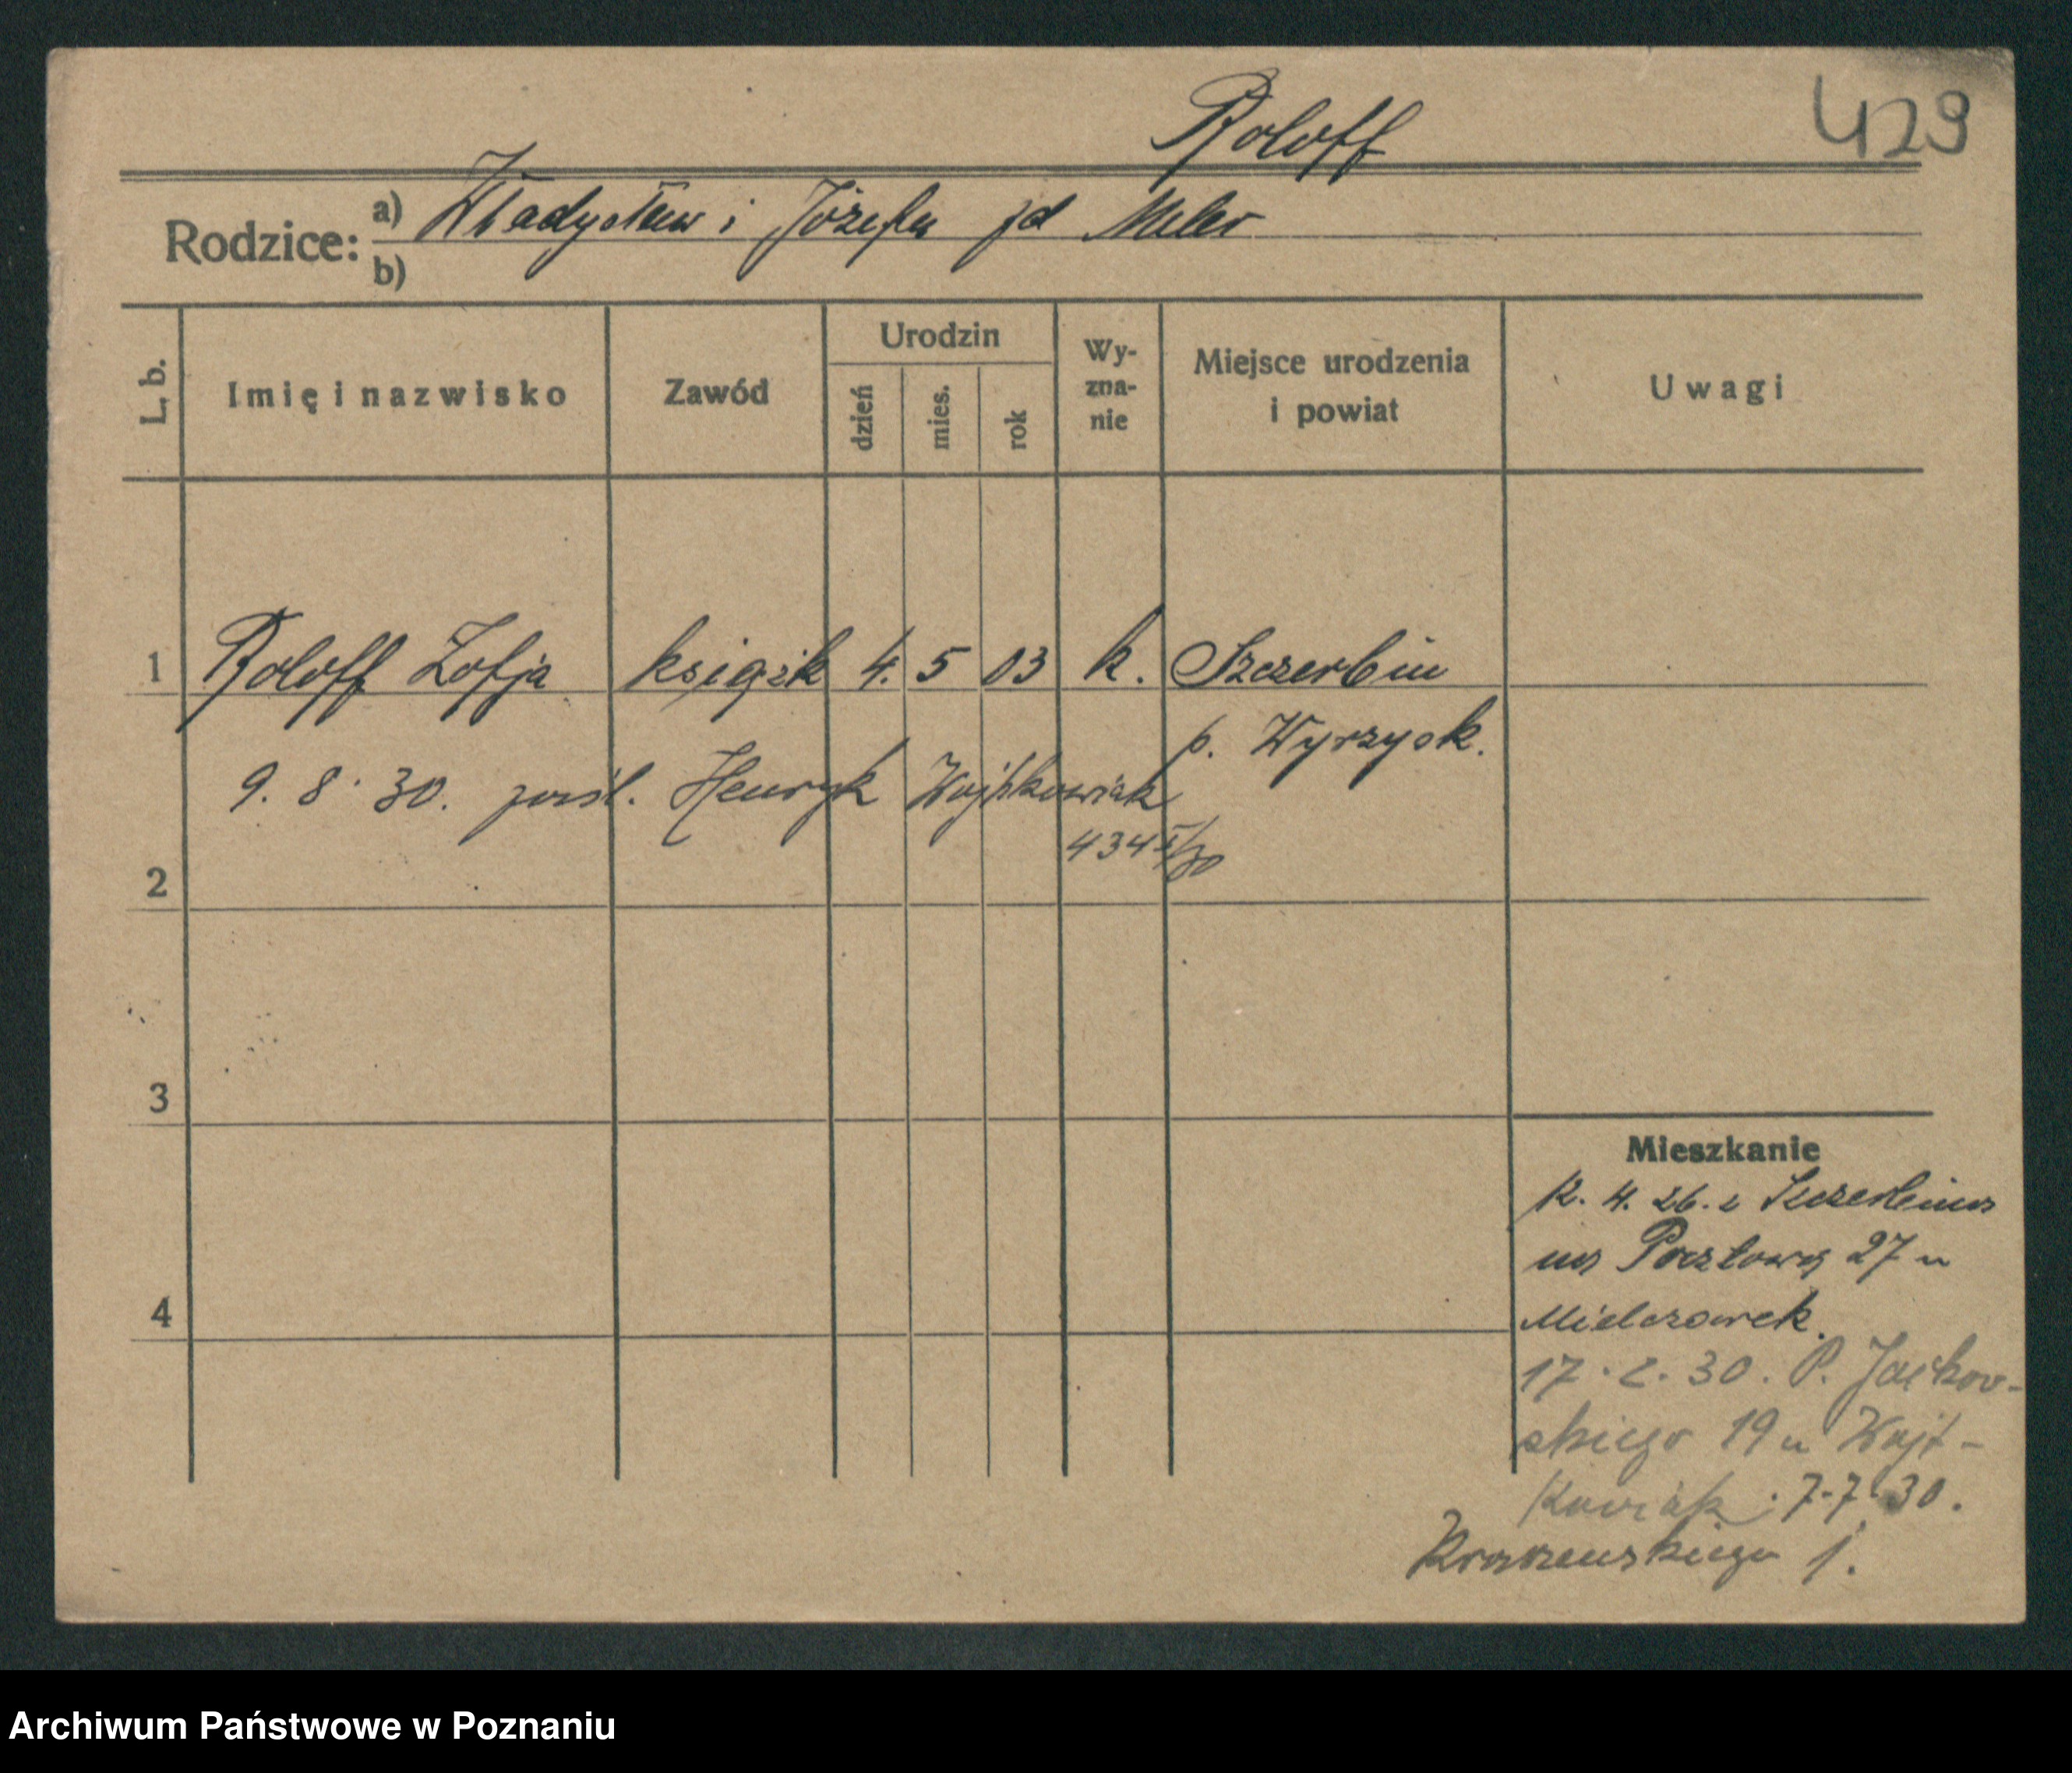 Roloff
429
Rodzice: a) Władysław i Józefa zd Meler
b)
L. b.
Imię i nazwisko
Zawód
Urodzin
dzień
mies.
rok
Wy-
zna-
nie
Miejsce urodzenia
i powiat
Uwagi
1 Roloff Zofja książk 4. 5 03 k. Szczerbin
p. Wyrzysk.
9. 8. 30. pośl. Henryk Wojtkowiak
2
3
4
Mieszkanie
4. 26. z Szczerbina
na Pocztową 27 u
Mielczarek.
17. 2. 30. P. Jackow-
skiego 19 u Wojt-
kowiak. 7.7.30.
Kraszewskiego 1.
Archiwum Państwowe w Poznaniu